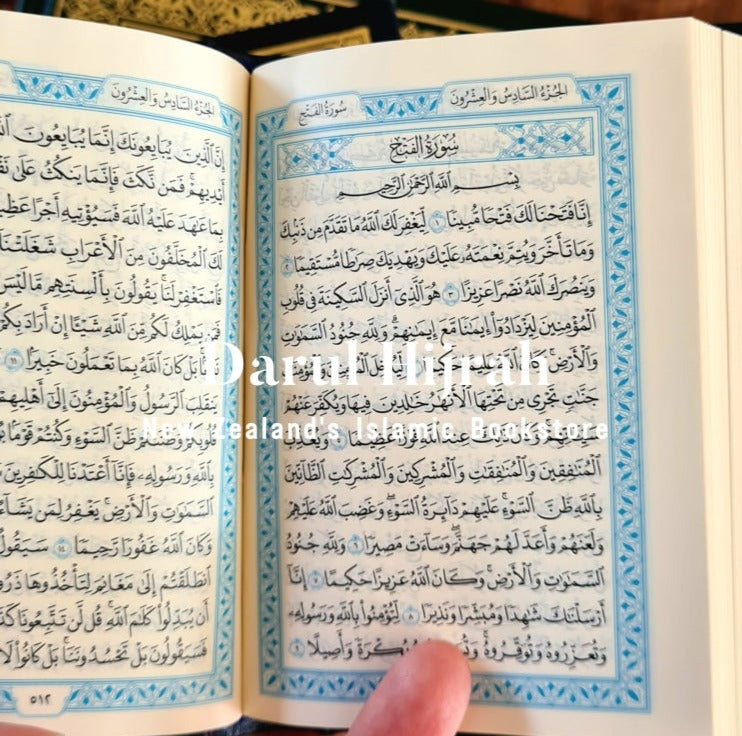 الجُزْءُ السَّادِسُ وَالعِشْرُونَ
سُورَةُ الفَتْحِ
سُورَةُ الفَتْحِ
بِسْمِ ٱللَّهِ ٱلرَّحْمَٰنِ ٱلرَّحِيمِ
إِنَّا فَتَحْنَا لَكَ فَتْحًا مُّبِينًا ١ لِّيَغْفِرَ لَكَ ٱللَّهُ مَا تَقَدَّمَ مِن ذَنۢبِكَ
وَمَا تَأَخَّرَ وَيُتِمَّ نِعْمَتَهُۥ عَلَيْكَ وَيَهْدِيَكَ صِرَٰطًا مُّسْتَقِيمًا ٢
وَيَنصُرَكَ ٱللَّهُ نَصْرًا عَزِيزًا ٣ هُوَ ٱلَّذِىٓ أَنزَلَ ٱلسَّكِينَةَ فِى قُلُوبِ
ٱلْمُؤْمِنِينَ لِيَزْدَادُوٓا۟ إِيمَٰنًا مَّعَ إِيمَٰنِهِمْ ۗ وَلِلَّهِ جُنُودُ ٱلسَّمَٰوَٰتِ
وَٱلْأَرْضِ ۚ
جَنَّٰتٍ تَجْرِى مِن تَحْتِهَا ٱلْأَنْهَٰرُ خَٰلِدِينَ فِيهَا وَيُكَفِّرَ عَنْهُمْ
عِندَ ٱللَّهِ فَوْزًا عَظِيمًا
ٱلْمُنَٰفِقِينَ وَٱلْمُنَٰفِقَٰتِ وَٱلْمُشْرِكِينَ وَٱلْمُشْرِكَٰتِ ٱلظَّآنِّينَ
بِٱللَّهِ ظَنَّ ٱلسَّوْءِ ۚ عَلَيْهِمْ دَآئِرَةُ ٱلسَّوْءِ ۖ وَغَضِبَ ٱللَّهُ عَلَيْهِمْ
وَلَعَنَهُمْ وَأَعَدَّ لَهُمْ جَهَنَّمَ ۖ وَسَآءَتْ مَصِيرًا ٦ وَلِلَّهِ جُنُودُ
ٱلسَّمَٰوَٰتِ وَٱلْأَرْضِ ۚ وَكَانَ ٱللَّهُ عَزِيزًا حَكِيمًا ٧ إِنَّآ
أَرْسَلْنَٰكَ شَٰهِدًا وَمُبَشِّرًا وَنَذِيرًا ٨ لِّتُؤْمِنُوا۟ بِٱللَّهِ وَرَسُولِهِۦ
وَتُعَزِّرُوهُ وَتُوَقِّرُوهُ ۚ بُكْرَةً وَأَصِيلًا ٩
الجُزْءُ السَّادِسُ وَالعِشْرُونَ
إِنَّ ٱلَّذِينَ يُبَايِعُونَكَ إِنَّمَا يُبَايِعُونَ
أَيْدِيهِمْ ۚ فَمَن نَّكَثَ فَإِنَّمَا يَنكُثُ عَلَىٰ
بِمَا عَٰهَدَ عَلَيْهُ ٱللَّهَ فَسَيُؤْتِيهِ أَجْرًا
لَكَ ٱلْمُخَلَّفُونَ مِنَ ٱلْأَعْرَابِ شَغَلَتْنَآ
فَٱسْتَغْفِرْ لَنَا ۚ يَقُولُونَ بِأَلْسِنَتِهِم مَّا لَيْسَ
فَمَن يَمْلِكُ لَكُم مِّنَ ٱللَّهِ شَيْـًٔا إِنْ أَرَادَ بِكُمْ
نَفْعًۢا ۚ بَلْ كَانَ ٱللَّهُ بِمَا تَعْمَلُونَ خَبِيرًۢا ١١
يَنقَلِبَ ٱلرَّسُولُ وَٱلْمُؤْمِنُونَ إِلَىٰٓ أَهْلِيهِمْ
ظَنَّ ٱلسَّوْءِ وَكُنتُمْ قَوْمًۢا
بِٱللَّهِ وَرَسُولِهِۦ فَإِنَّآ أَعْتَدْنَا لِلْكَٰفِرِينَ
ٱلسَّمَٰوَٰتِ وَٱلْأَرْضِ ۚ يَغْفِرُ لِمَن يَشَآءُ
وَكَانَ ٱللَّهُ غَفُورًا رَّحِيمًا ١٤ سَيَقُولُ
ٱنطَلَقْتُمْ إِلَىٰ مَغَانِمَ لِتَأْخُذُوهَا
أَن يُبَدِّلُوا۟ كَلَٰمَ ٱللَّهِ ۚ قُل لَّن تَتَّبِعُونَا
فَسَيَقُولُونَ بَلْ تَحْسُدُونَنَا ۚ بَلْ كَانُوا۟
٥١٢
Darul Hijrah
New Zealand's Islamic Bookstore